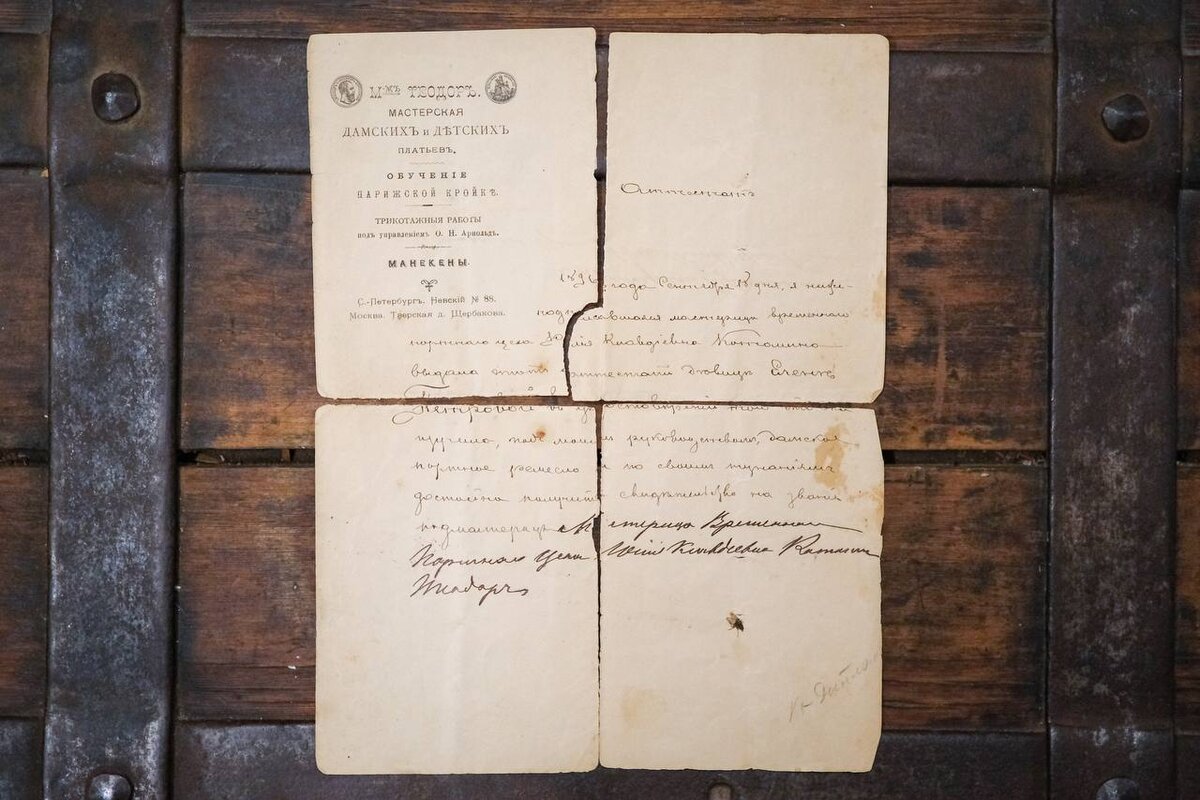 Мᵐᵉ ТЕОДОРЪ.
МАСТЕРСКАЯ
ДАМСКИХЪ и ДѢТСКИХЪ
ПЛАТЬЕВЪ.
ОБУЧЕНІЕ
ПАРИЖСКОЙ КРОЙКѢ.
ТРИКОТАЖНЫЯ РАБОТЫ
подъ управленіемъ О. Н. Арнольдъ.
МАНЕКЕНЫ.
С.-Петербургъ. Невскій № 88.
Москва. Тверская д. Щербакова.
Аттестатъ
года Сентября 18 дня, я ниже-
подписавшаяся мастерица временнаго
портнаго цеха Юлія Клавдіевна
выдала этотъ аттестатъ дѣвицѣ Еленѣ
Петровой въ томъ что она
изучила, подъ моимъ руководствомъ, дамское
портное ремесло и по своимъ познаніямъ
достойна получить свидѣтельство на званіе
подмастерицы Мастерица Временнаго
Портнаго Цеха Юлія Клавдіевна
Теодоръ